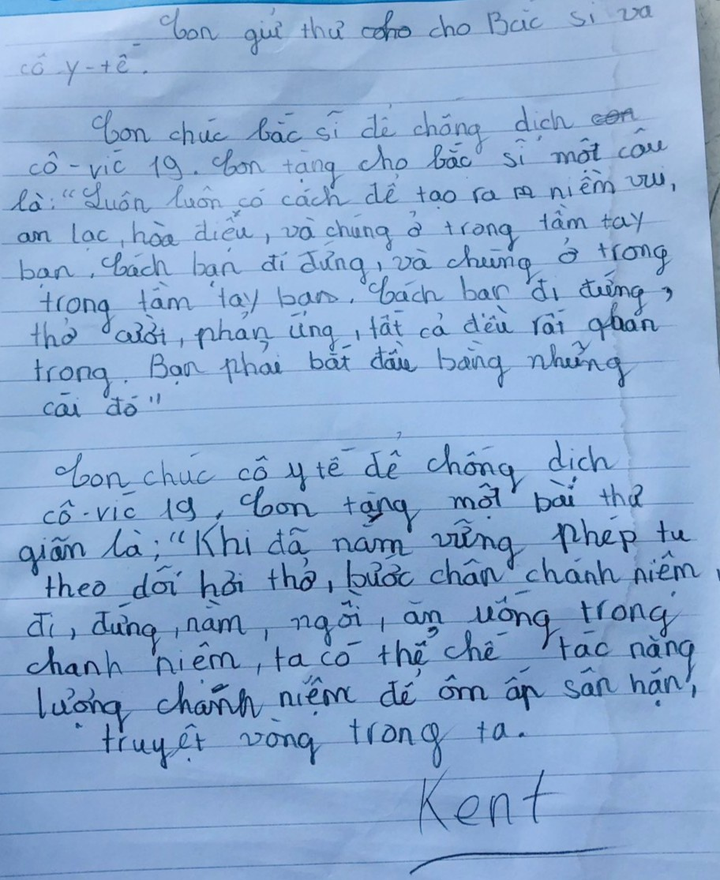 Con gửi thư cho cho Bác sĩ và
cô y-tế.
Con chúc bác sĩ để chống dịch con
cô-vic 19. Con tặng cho bác sĩ một câu
là: "Luôn luôn có cách để tạo ra m niềm vui,
an lạc, hòa điếu, và chúng ở trong tầm tay
bạn. Cách bạn đi đứng, và chúng ở trong
trong tầm tay bạn. Cách bạn đi đứng,
thở cười, phản ứng, tất cả đều rất quan
trọng. Bạn phải bắt đầu bằng những
cái đó"
Con chúc cô y tế để chống dịch
cô-vic 19. Con tặng một bài thơ
giãn là; "Khi đã nắm vững phép tu
theo dõi hơi thở, bước chân chánh niệm,
đi, đứng, nằm, ngồi, ăn uống trong
chanh niêm, ta có thể chế tác năng
lượng chánh niệm để ôm ấp sân hận,
truyệt vòng trong ta.
Kent